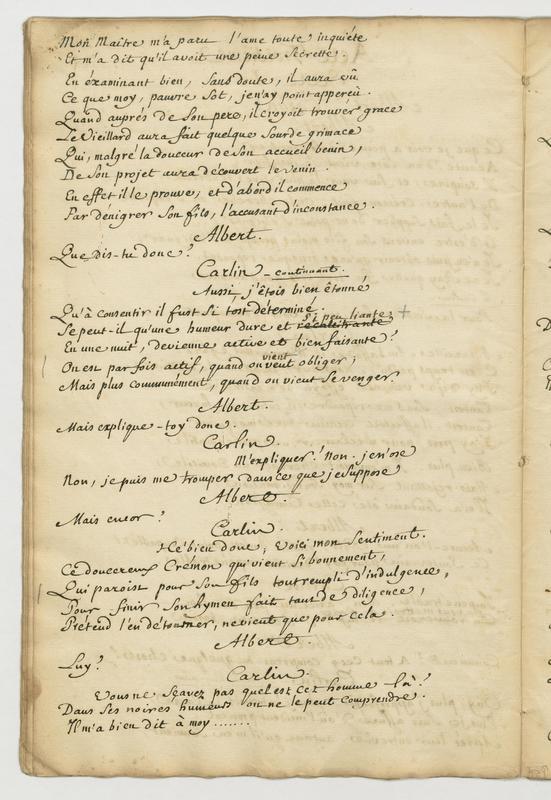 Mon Maître m'a paru l'ame toute inquiéte
Et m'a dit qu'il avoit une peine Secrette.
En éxaminant bien, Sans doute, il aura vû
Ce que moy, pauvre Sot, je n'ay point apperçû.
Quand auprés de Son pere, il croyoit trouver grace
Le Vieillard aura fait quelque Sourde grimace
Qui, malgré la douceur de Son accueil benin,
De Son projet aura découvert le venin.
En effet il le prouve; et d'abord il commence
Par dénigrer Son fils, l'accusant d'inconstance.
Albert.
Que dis-tu donc?
Carlin - continuant.
Aussi, j'étois bien étonné
Qu'à consentir il fust Si tost détérminé.
Si peu liante; +
Se peut-il qu'une humeur dure et recalcitrante
En une nuit, devienne active et bien faisante?
On est par fois actif, quand on vient veut obliger;
Mais plus communément, quand on vient Se venger.
Albert.
Mais explique-toy donc.
Carlin.
M'expliquer! non. je n'ose
Non, je puis me tromper dans ce que je Suppose
Albert.
Mais encor?
Carlin.
Hé bien donc, Voici mon Sentiment.
Ce doucereux Crémon qui vient Si bonnement,
Qui paroist pour Son fils tout rempli d'indulgence,
Pour finir Son hymen fait tant de diligence,
Prétend l'en détourner, ne vient que pour cela.
Albert.
Luy?
Carlin.
Vous ne Sçavez pas quel est cet homme là!
Dans Ses noires humeurs on ne le peut comprendre.
Il m'a bien dit à moy .......